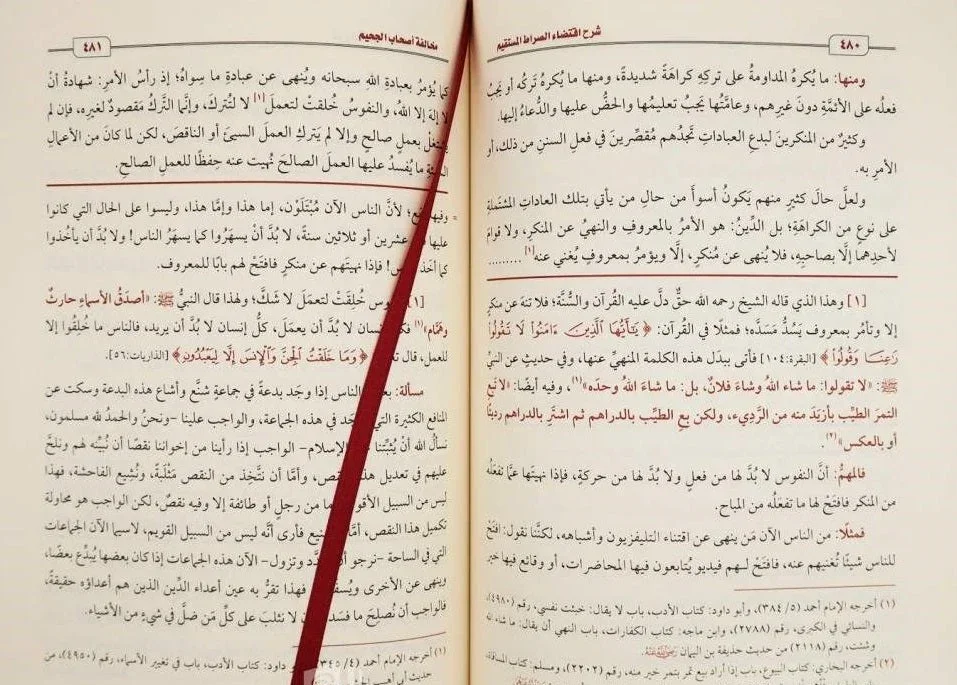 ٤٨٠
شرح اقتضاء الصراط المستقيم
ومنها: ما يُكرهُ المداومةُ على تركِهِ كراهَةً شديدةً، ومنها ما يُكرهُ تَركُه أو يَجبُ
فعلُه على الأئمَّةِ دونَ غيرِهم، وعامَّتُها يَجبُ تعليمُها والحضُّ عليها والدُّعاءُ إليها.
وكثيرٌ من المنكرينَ لبدعِ العباداتِ تَجدُهم مُقصِّرينَ في فعلِ السننِ من ذلك، أو
الأمرِ به.
ولعلَّ حالَ كثيرٍ منهم يَكونُ أسوأَ من حالِ من يأتي بتلك العاداتِ المشتملةِ
على نوعٍ من الكراهَةِ؛ بل الدِّينُ: هو الأمرُ بالمعروفِ والنهيُ عن المنكرِ، ولا قوامَ
لأحدِهما إلَّا بصاحبِهِ، فلا يُنهى عن مُنكرٍ، إلَّا ويؤمرُ بمعروفٍ يُغني عنه[١] ..........
[١] وهذا الذي قاله الشيخ رحمه الله حقٌّ دلَّ عليه القُرآن والسُّنَّة؛ فلا تنهَ عن منكرٍ
إلا وتأمُر بمعروف يَسُدُّ مَسَدَّه؛ فمثلًا في القُرآن: ﴿ يَٰٓأَيُّهَا ٱلَّذِينَ ءَامَنُواْ لَا تَقُولُواْ
رَٰعِنَا وَقُولُواْ ﴾ [البقرة:١٠٤] فأتى ببدَل هذه الكلمة المنهيِّ عنها، وفي حديثٍ عن النبيِّ
ﷺ: «لا تقولوا: ما شاء اللهُ وشاءَ فلانٌ، بل: ما شاءَ اللهُ وحدَه»(١)، وفيه أيضًا: «لا تَبعِ
التمرَ الطيِّبَ بأزيَدَ منه من الرَّديءِ، ولكن بِعِ الطيِّبَ بالدراهم ثم اشترِ بالدراهم رديئًا
أو بالعكس»(٢).
فالمهمُّ: أنَّ النفوس لا بُدَّ لها من فعلٍ ولا بُدَّ لها من حركةٍ، فإذا نهيتَها عمَّا تفعَلُه
من المنكر فافتَحْ لها ما تفعَلُه من المباح.
فمثلًا: من الناس الآن مَن يَنهى عن اقتناء التليفزيون وأشباهه، لكنَّنا نقول: افتَحْ
للناس شيئًا تُغنيهم عنه، فافتَحْ لهم فيديو يُتابعون فيها المحاضرات، أو وقائع فيها خبر
(١) أخرجه الإمام أحمد (٥/ ٣٨٤)، وأبو داود: كتاب الأدب، باب لا يقال: خبثت نفسي، رقم (٤٩٨٠)،
والنسائي في الكبرى، رقم (٢٧٨٨)، وابن ماجه: كتاب الكفارات، باب النهي أن يقال: ما شاء الله
وشئت، رقم (٢١١٨) من حديث حذيفة بن اليمان رضي الله عنه.
(٢) أخرجه البخاري: كتاب البيوع، باب إذا أراد بيع تمر بتمر خير منه، رقم (٢٢٠٢)، ومسلم: كتاب المساقاة،
مخالفة أصحاب الجحيم
٤٨١
كما يُؤمرُ بعبادةِ اللهِ سبحانه ويُنهى عن عبادةِ ما سِواهُ؛ إذ رأسُ الأمرِ: شهادةُ أنْ
لا إلهَ إلا اللهُ، والنفوسُ خُلقتْ لتعملَ[١] لا لتُتركَ، وإنَّما التَّركُ مَقصودٌ لغيرِه، فإن لم
يشتغلْ بعملٍ صالحٍ وإلا لم يَتركِ العملَ السيئَ أو الناقصَ، لكن لما كانَ من الأعمالِ
السيئةِ ما يُفسدُ عليها العملَ الصالحَ نُهيت عنه حِفظًا للعملِ الصالحِ.
= وفيها نفع؛ لأنَّ الناس الآن مُبْتَلَوْن، إما هذا وإمَّا هذا، وليسوا على الحال التي كانوا
عليها قبل عشرين أو ثلاثين سنةً، لا بُدَّ أنْ يسهَرُوا كما يسهَرُ الناس! ولا بُدَّ أن يأخُذوا
كما أخذ الناس! فإذا نهيتَهم عن منكرٍ فافتَحْ لهم بابًا للمعروف.
[١] النفوس خُلِقتْ لتعمَلَ لا شَكَّ؛ ولهذا قال النبيُّ ﷺ: «أصدَقُ الأسماءِ حارثٌ
وهمَّام»(١) فكل إنسان لا بُدَّ أن يعمَل، كلُّ إنسان لا بُدَّ أن يريد، فالناس ما خُلِقوا إلا
للعمل، قال تعالى: ﴿ وَمَا خَلَقْتُ ٱلْجِنَّ وَٱلْإِنسَ إِلَّا لِيَعْبُدُونِ ﴾ [الذاريات:٥٦].
مسألة: بعض الناس إذا وجَد بدعةً في جماعةٍ شنَّع وأشاع هذه البدعة وسكت عن
المنافع الكثيرة التي توجَد في هذه الجماعة، والواجب علينا -ونحنُ والحمدُ لله مسلمون،
نسألُ اللهَ أنْ يُثبِّتنا على الإسلام- الواجب إذا رأينا من إخواننا نقصًا أن نُبيِّنه لهم ونلحَّ
عليهم في تعديل هذا النقص، وأمَّا أن نتَّخِذ من النقص مَثْلَبةً، ونُشيع الفاحشةَ، فهذا
ليس من السبيل الأقوم، ما من رجلٍ أو طائفة إلا وفيه نقصٌ، لكن الواجب هو محاولة
تكميل هذا النقص، أمَّا التشنيع فأرى أنَّه ليس من السبيل القويم، لاسيما الآن الجماعات
التي في الساحة -نرجو أن تتبدَّد وتزول- الآن هذه الجماعات إذا كان بعضها يُبدِّع بعضًا،
وينهى عن الأخرى ويُسفِّه فهذا تقرُّ به عين أعداء الدِّين الذين هم أعداؤه حقيقةً،
فالواجب أن نُصلِحَ ما فسَد، وأن لا نثلبَ على كلِّ مَن ضلَّ في شيءٍ من الأشياء.
(١) أخرجه الإمام أحمد (٤/ ٣٤٥)، وأبو داود: كتاب الأدب، باب في تغيير الأسماء، رقم (٤٩٥٠)، من
حديث أبي وهب